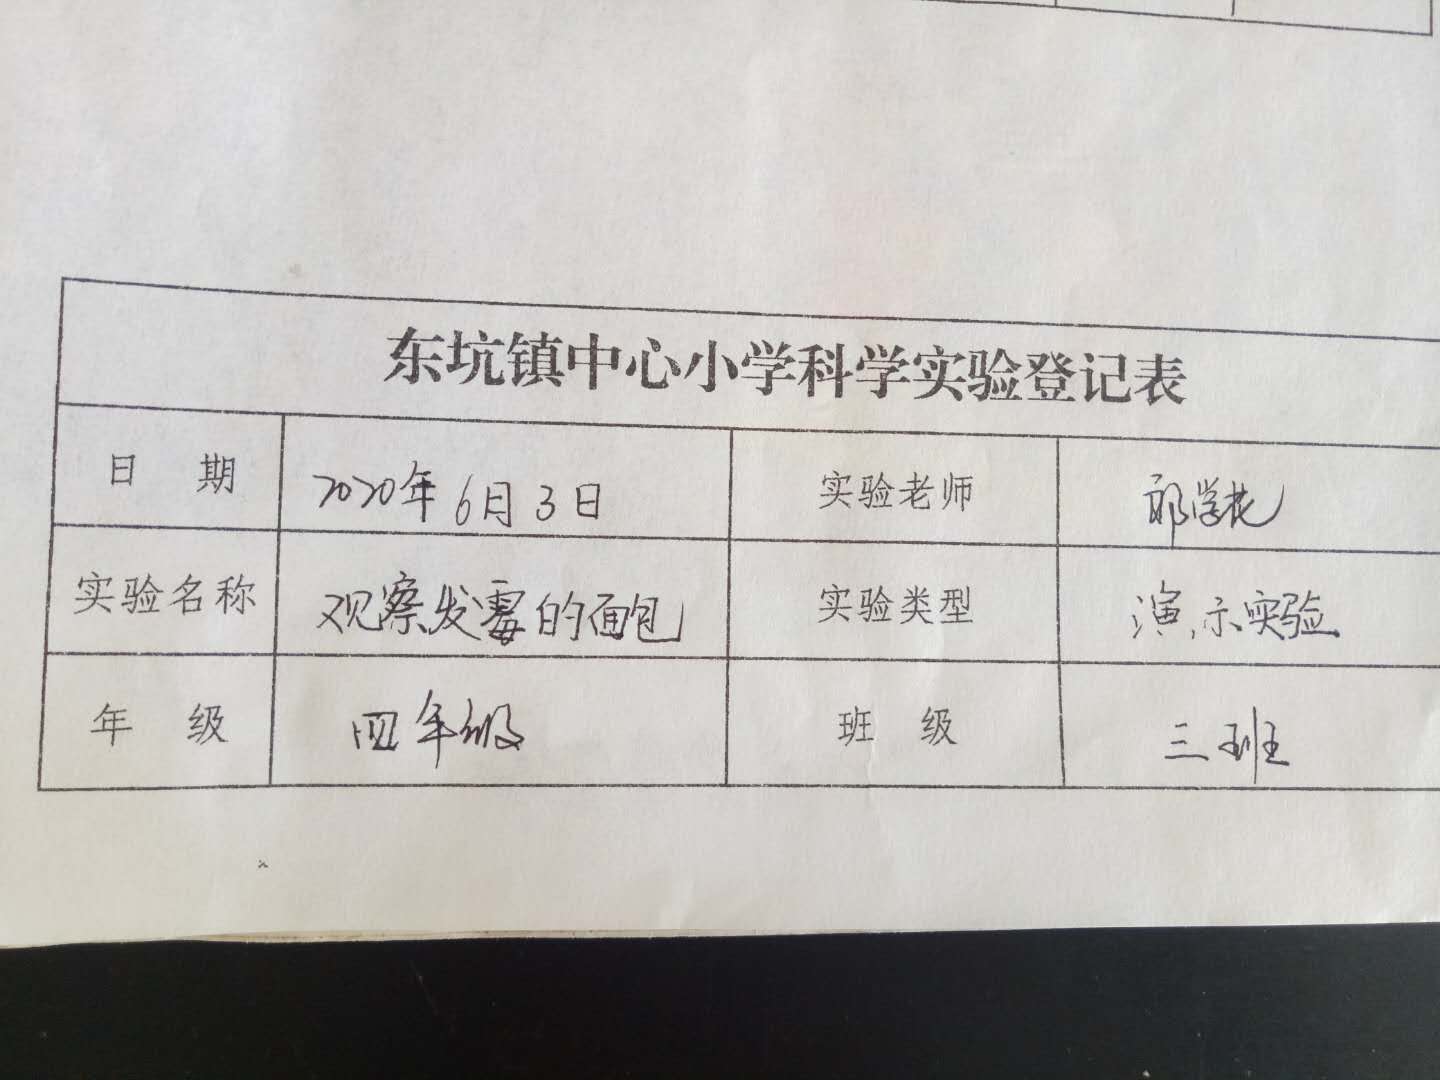 东坑镇中心小学科学实验登记表
日 期 2020年6月3日 实验老师
实验名称 观察发霉的面包 实验类型 演示实验
年 级 四年级 班 级 三班